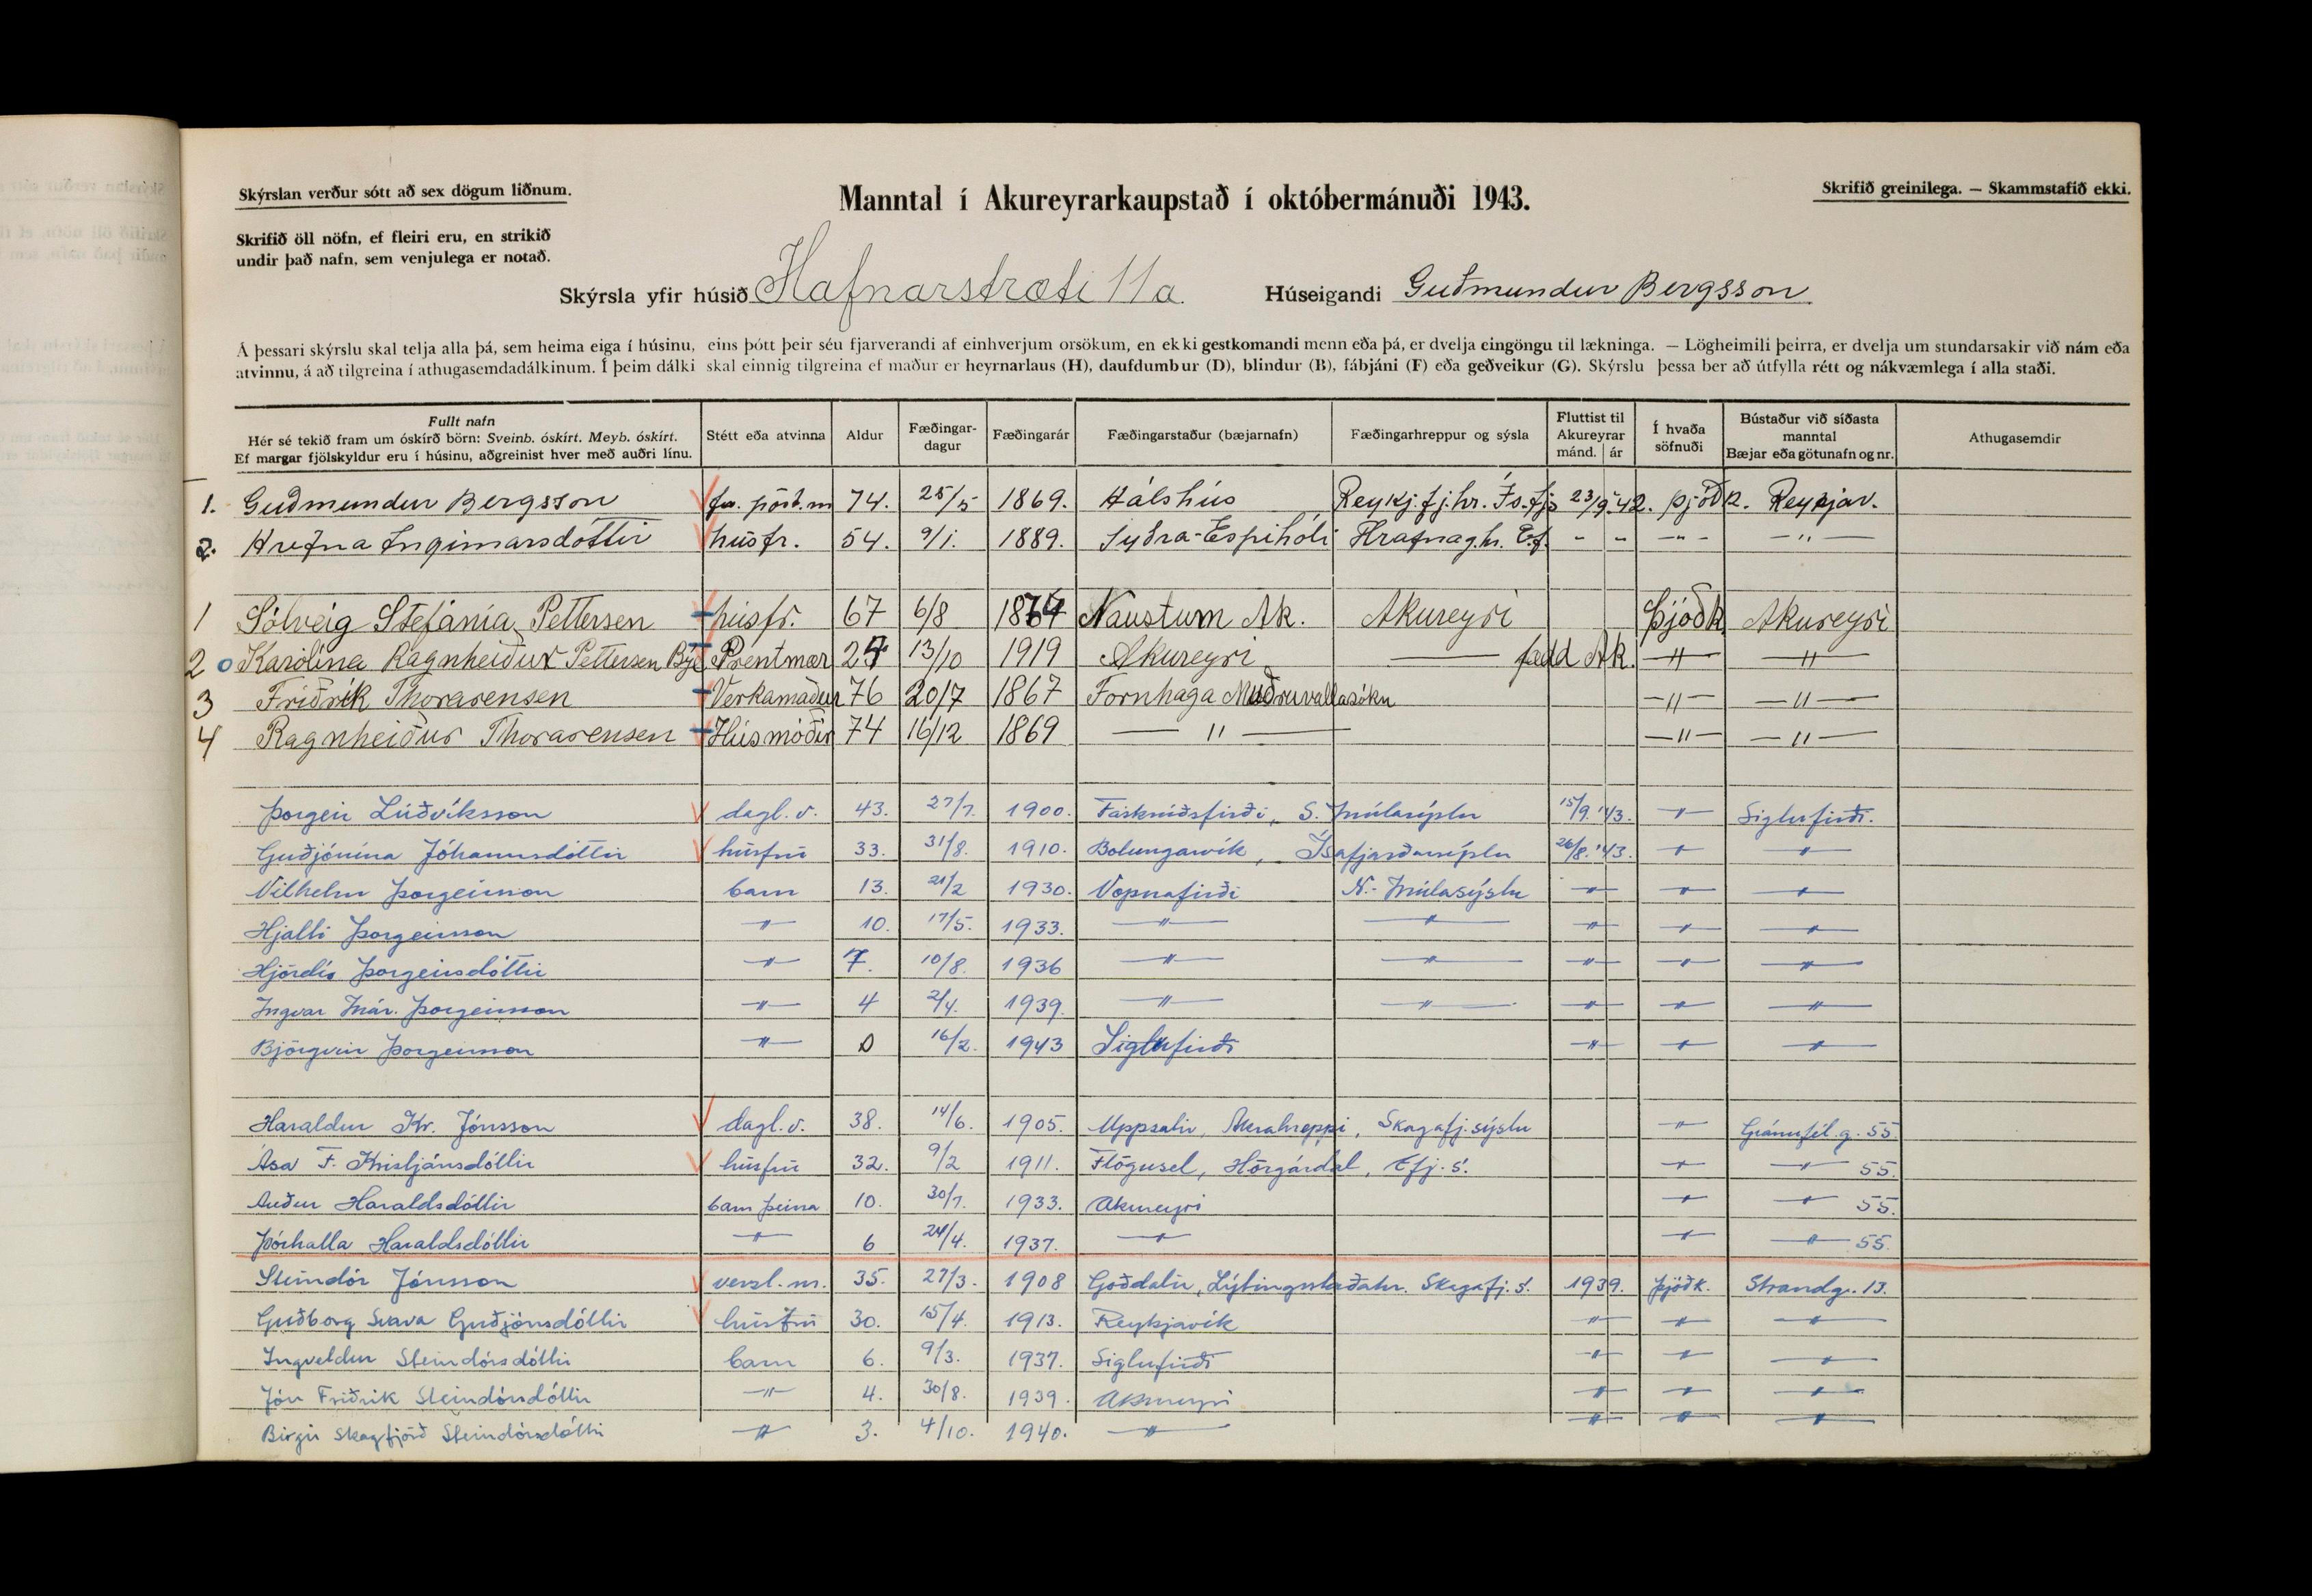 Skýrslan verður sótt að sex dögum liðnum.
Manntal í Akureyrarkaupstað í októbermánuði 1943.
Skrifið greinilega. — Skammstafið ekki.
Skrifið öll nöfn, ef fleiri eru, en strikið
undir það nafn, sem venjulega er notað.
Skýrsla yfir húsið Hafnarstræti 11a. Húseigandi Guðmundur Bergsson
Á þessari skýrslu skal telja alla þá, sem heima eiga í húsinu, eins þótt þeir séu fjarverandi af einhverjum orsökum, en ekki gestkomandi menn eða þá, er dvelja eingöngu til lækninga. — Lögheimili þeirra, er dvelja um stundarsakir við nám eða
atvinnu, á að tilgreina í athugasemdadálkinum. Í þeim dálki skal einnig tilgreina ef maður er heyrnarlaus (H), daufdumbur (D), blindur (B), fábjáni (F) eða geðveikur (G). Skýrslu þessa ber að útfylla rétt og nákvæmlega í alla staði.
Fullt nafn
Hér sé tekið fram um óskírð börn: Sveinb. óskírt. Meyb. óskírt.
Ef margar fjölskyldur eru í húsinu, aðgreinist hver með auðri línu.
Stétt eða atvinna
Aldur
Fæðingar-
dagur
Fæðingarár
Fæðingarstaður (bæjarnafn)
Fæðingarhreppur og sýsla
Fluttist til
Akureyrar
mánd. ár
Í hvaða
söfnuði
Bústaður við síðasta
manntal
Bæjar eða götunafn og nr.
Athugasemdir
1. Guðmundur Bergsson fv. póstm 74. 25/5 1869. Hálshús Reykj.fj.hr. Ís.fjs 23/9 42. þjóðk. Reykjav.
2. Hrefna Ingimarsdóttir húsfr. 54. 9/1. 1889. Syðra-Espihóli Hrafnag.hr. Ef. - - -"- -"-
1 Sólveig Stefánía Pettersen húsfr. 67 6/8 1874 Naustum Ak. Akureyri Þjóðk Akureyri
2 Karólína Ragnheiður Pettersen Prentmær 24 13/10 1919 Akureyri fædd Ak. -"- -"-
3 Friðrik Thorarensen Verkamaður 76 20/7 1867 Fornhaga Möðruvallasókn -"- -"-
4 Ragnheiður Thorarensen Húsmóðir 74 16/12 1869 -"- -"- -"-
Þorgeir Lúðvíksson dagl.v. 43. 27/7. 1900. Fáskrúðsfirði, S. Múlasýslu 15/9.'43. -"- Siglufirði.
Guðjónína Jóhannsdóttir húsfrú 33. 31/8. 1910. Bolungarvík, Ísafjarðarsýslu 26/8.'43. -"- -"-
Vilhelm Þorgeirsson barn 13. 21/2 1930. Vopnafirði N.-Múlasýslu -"- -"- -"-
Hjalti Þorgeirsson -"- 10. 17/5. 1933. -"- -"- -"- -"- -"-
Hjördís Þorgeirsdóttir -"- 7. 10/8. 1936 -"- -"- -"- -"- -"-
Ingvar Már. Þorgeirsson -"- 4 2/4. 1939. -"- -"- -"- -"- -"-
Björgvin Þorgeirsson -"- 0 16/2. 1943 Siglufirði -"- -"- -"-
Haraldur Kr. Jónsson dagl.v. 38. 14/6. 1905. Uppsalir, Akrahreppi, Skagafj.sýslu -"- Gránufél.g. 55.
Ása F. Kristjánsdóttir húsfrú 32. 9/2 1911. Flögusel, Hörgárdal, Efj.s. -"- -"- 55.
Auður Haraldsdóttir barn þeirra 10. 30/7. 1933. Akureyri -"- -"- 55.
Þórhalla Haraldsdóttir -"- 6 24/4. 1937. -"- -"- -"- 55.
Steindór Jónsson verzl.m. 35. 27/3. 1908 Goðdalir, Lýtingsstaðahr. Skagafj.s. 1939. þjóðk. Strandg. 13.
Guðborg Svava Guðjónsdóttir húsfrú 30. 15/4. 1913. Reykjavík -"- -"- -"-
Ingveldur Steindórsdóttir barn 6. 9/3. 1937. Siglufirði -"- -"- -"-
Jón Friðrik Steindórsdóttir -"- 4. 30/8. 1939. Akureyri -"- -"- -"-
Birgir Skagfjörð Steindórsdóttir -"- 3. 4/10. 1940. -"- -"- -"- -"-